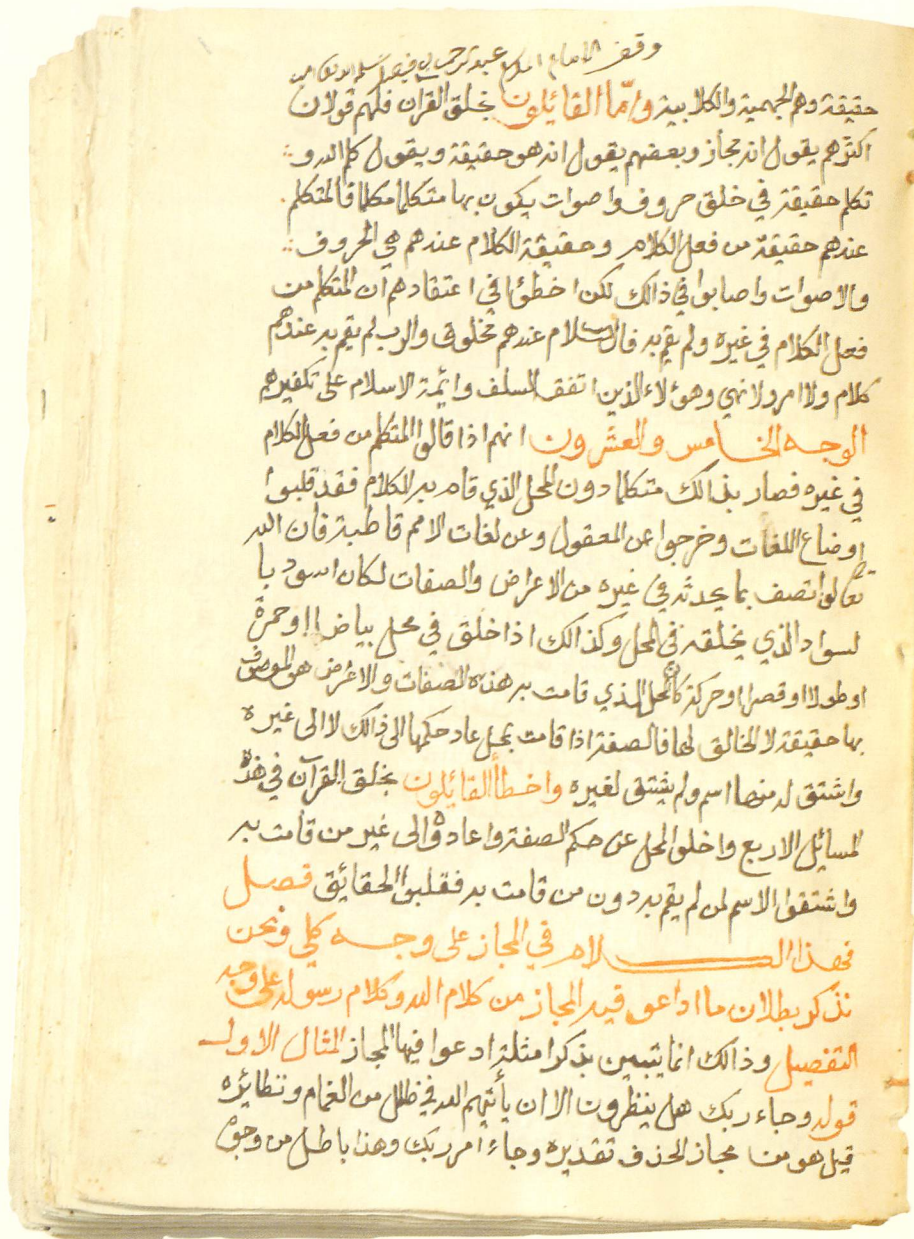 وقف الامام المكرم عبد الرحمن بن فيصل سلمه الله تعالى
حقيقة وهم الجهمية والكلابية واما القائلون بخلق القران فلهم قولان
اكثرهم يقول انه مجاز وبعضهم يقول انه هو حقيقة ويقول كلم الله و
تكلم حقيقة في خلق حروف واصوات يكون بها متكلما مكلما فالمتكلم
عندهم حقيقة من فعل الكلام وحقيقة الكلام عندهم هي الحروف
والاصوات واصابوا في ذالك لكن اخطؤا في اعتقادهم ان المتكلم من
فعل الكلام في غيره ولم يقم به فالكلام عندهم مخلوق والرب لم يقم به عندهم
كلام ولا امر ولا نهي وهؤلاء الذين اتفق السلف وائمة الاسلام على تكفيرهم
الوجه الخامس والعشرون انهم اذا قالوا المتكلم من فعل الكلام
في غيره فصار بذالك متكلما دون المحل الذي قام به الكلام فقد قلبوا
اوضاع اللغات وخرجوا عن المعقول وعن لغات الامم قاطبة فان الله
تعالى لو اتصف بما يحدثه في غيره من الاعراض والصفات لكان اسود با
لسواد الذي يخلقه في المحل وكذالك اذا خلق في محل بياضا او حمرة
او طولا او قصرا او حركة كان المحل الذي قامت به هذه الصفات والاعراض هو الموصوف
بها حقيقة لا الخالق لها فالصفة اذا قامت بمحل عاد حكمها الى ذالك لا الى غيره
واشتق له منها اسم ولم يشتق لغيره واخطأ القائلون بخلق القرآن في هذه
المسائل الاربع واخلو المحل عن حكم الصفة واعادوه الى غير من قامت به
واشتقوا الاسم لمن لم يقم به دون من قامت به فقلبوا الحقائق فصل
فهذا الكلام في المجاز على وجه كلي ونحن
نذكر بطلان ما ادعو فيه المجاز من كلام الله وكلام رسوله على وجه
التفصيل وذالك انما يتبين بذكر امثلة ادعوا فيها المجاز المثال الاول
قوله وجاء ربك هل ينظرون الا ان يأتيهم الله في ظلل من الغمام ونظائره
قيل هو من مجاز الحذف تقديره وجاء امر ربك وهذا باطل من وجوه